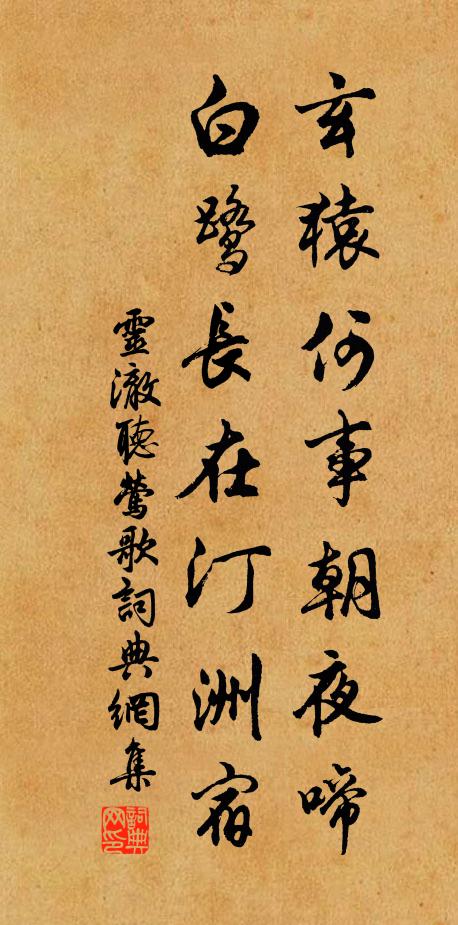 玄猿何事朝夜啼
白鷺長在汀洲宿
靈澈聽鶯歌詞典網集
詞典
网印